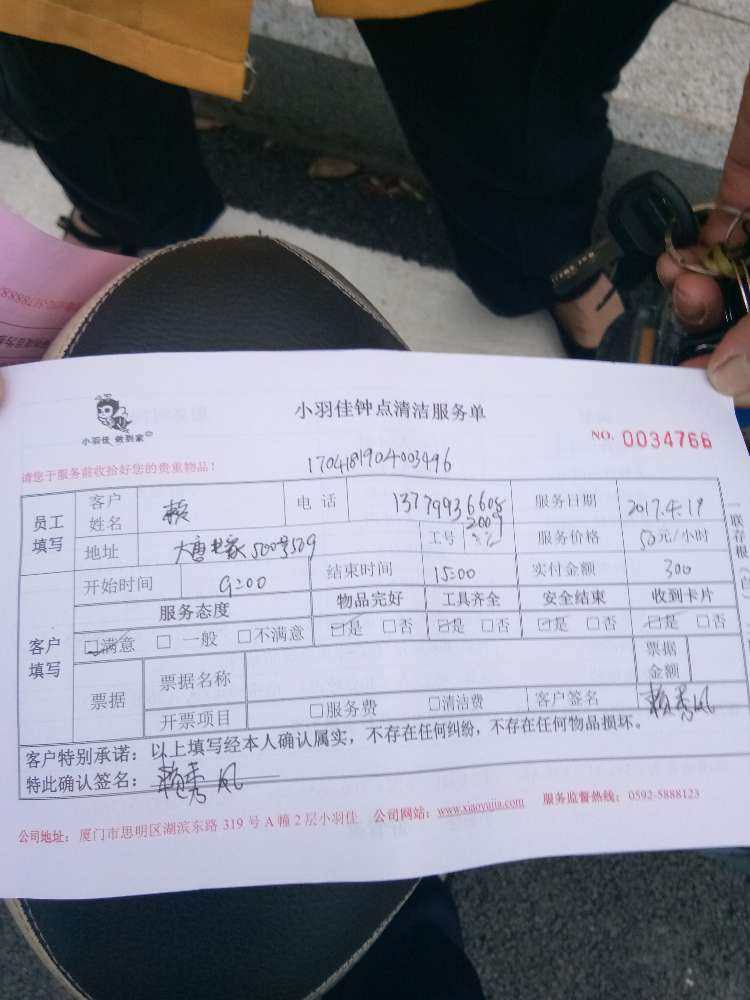 小羽佳 做到家
小羽佳钟点清洁服务单
NO. 0034766
请您于服务前收拾好您的贵重物品!
1704181904003496
员工填写 客户姓名 赖 电话 13779936608 服务日期 2017.4.19
地址 大唐世家500号509 工号 2009 服务价格 50元/小时
客户填写 开始时间 9:00 结束时间 15:00 实付金额 300
服务态度 物品完好 工具齐全 安全结束 收到卡片
☑满意 □一般 □不满意 ☑是 □否 ☑是 □否 ☑是 □否 ☑是 □否
票据 票据名称 票据金额
开票项目 □服务费 □清洁费 客户签名 赖秀凤
客户特别承诺:以上填写经本人确认属实,不存在任何纠纷,不存在任何物品损坏。
特此确认签名:赖秀凤
公司地址:厦门市思明区湖滨东路 319 号 A 幢 2 层小羽佳 公司网站:www.xiaoyujia.com 服务监督热线:0592-5888123